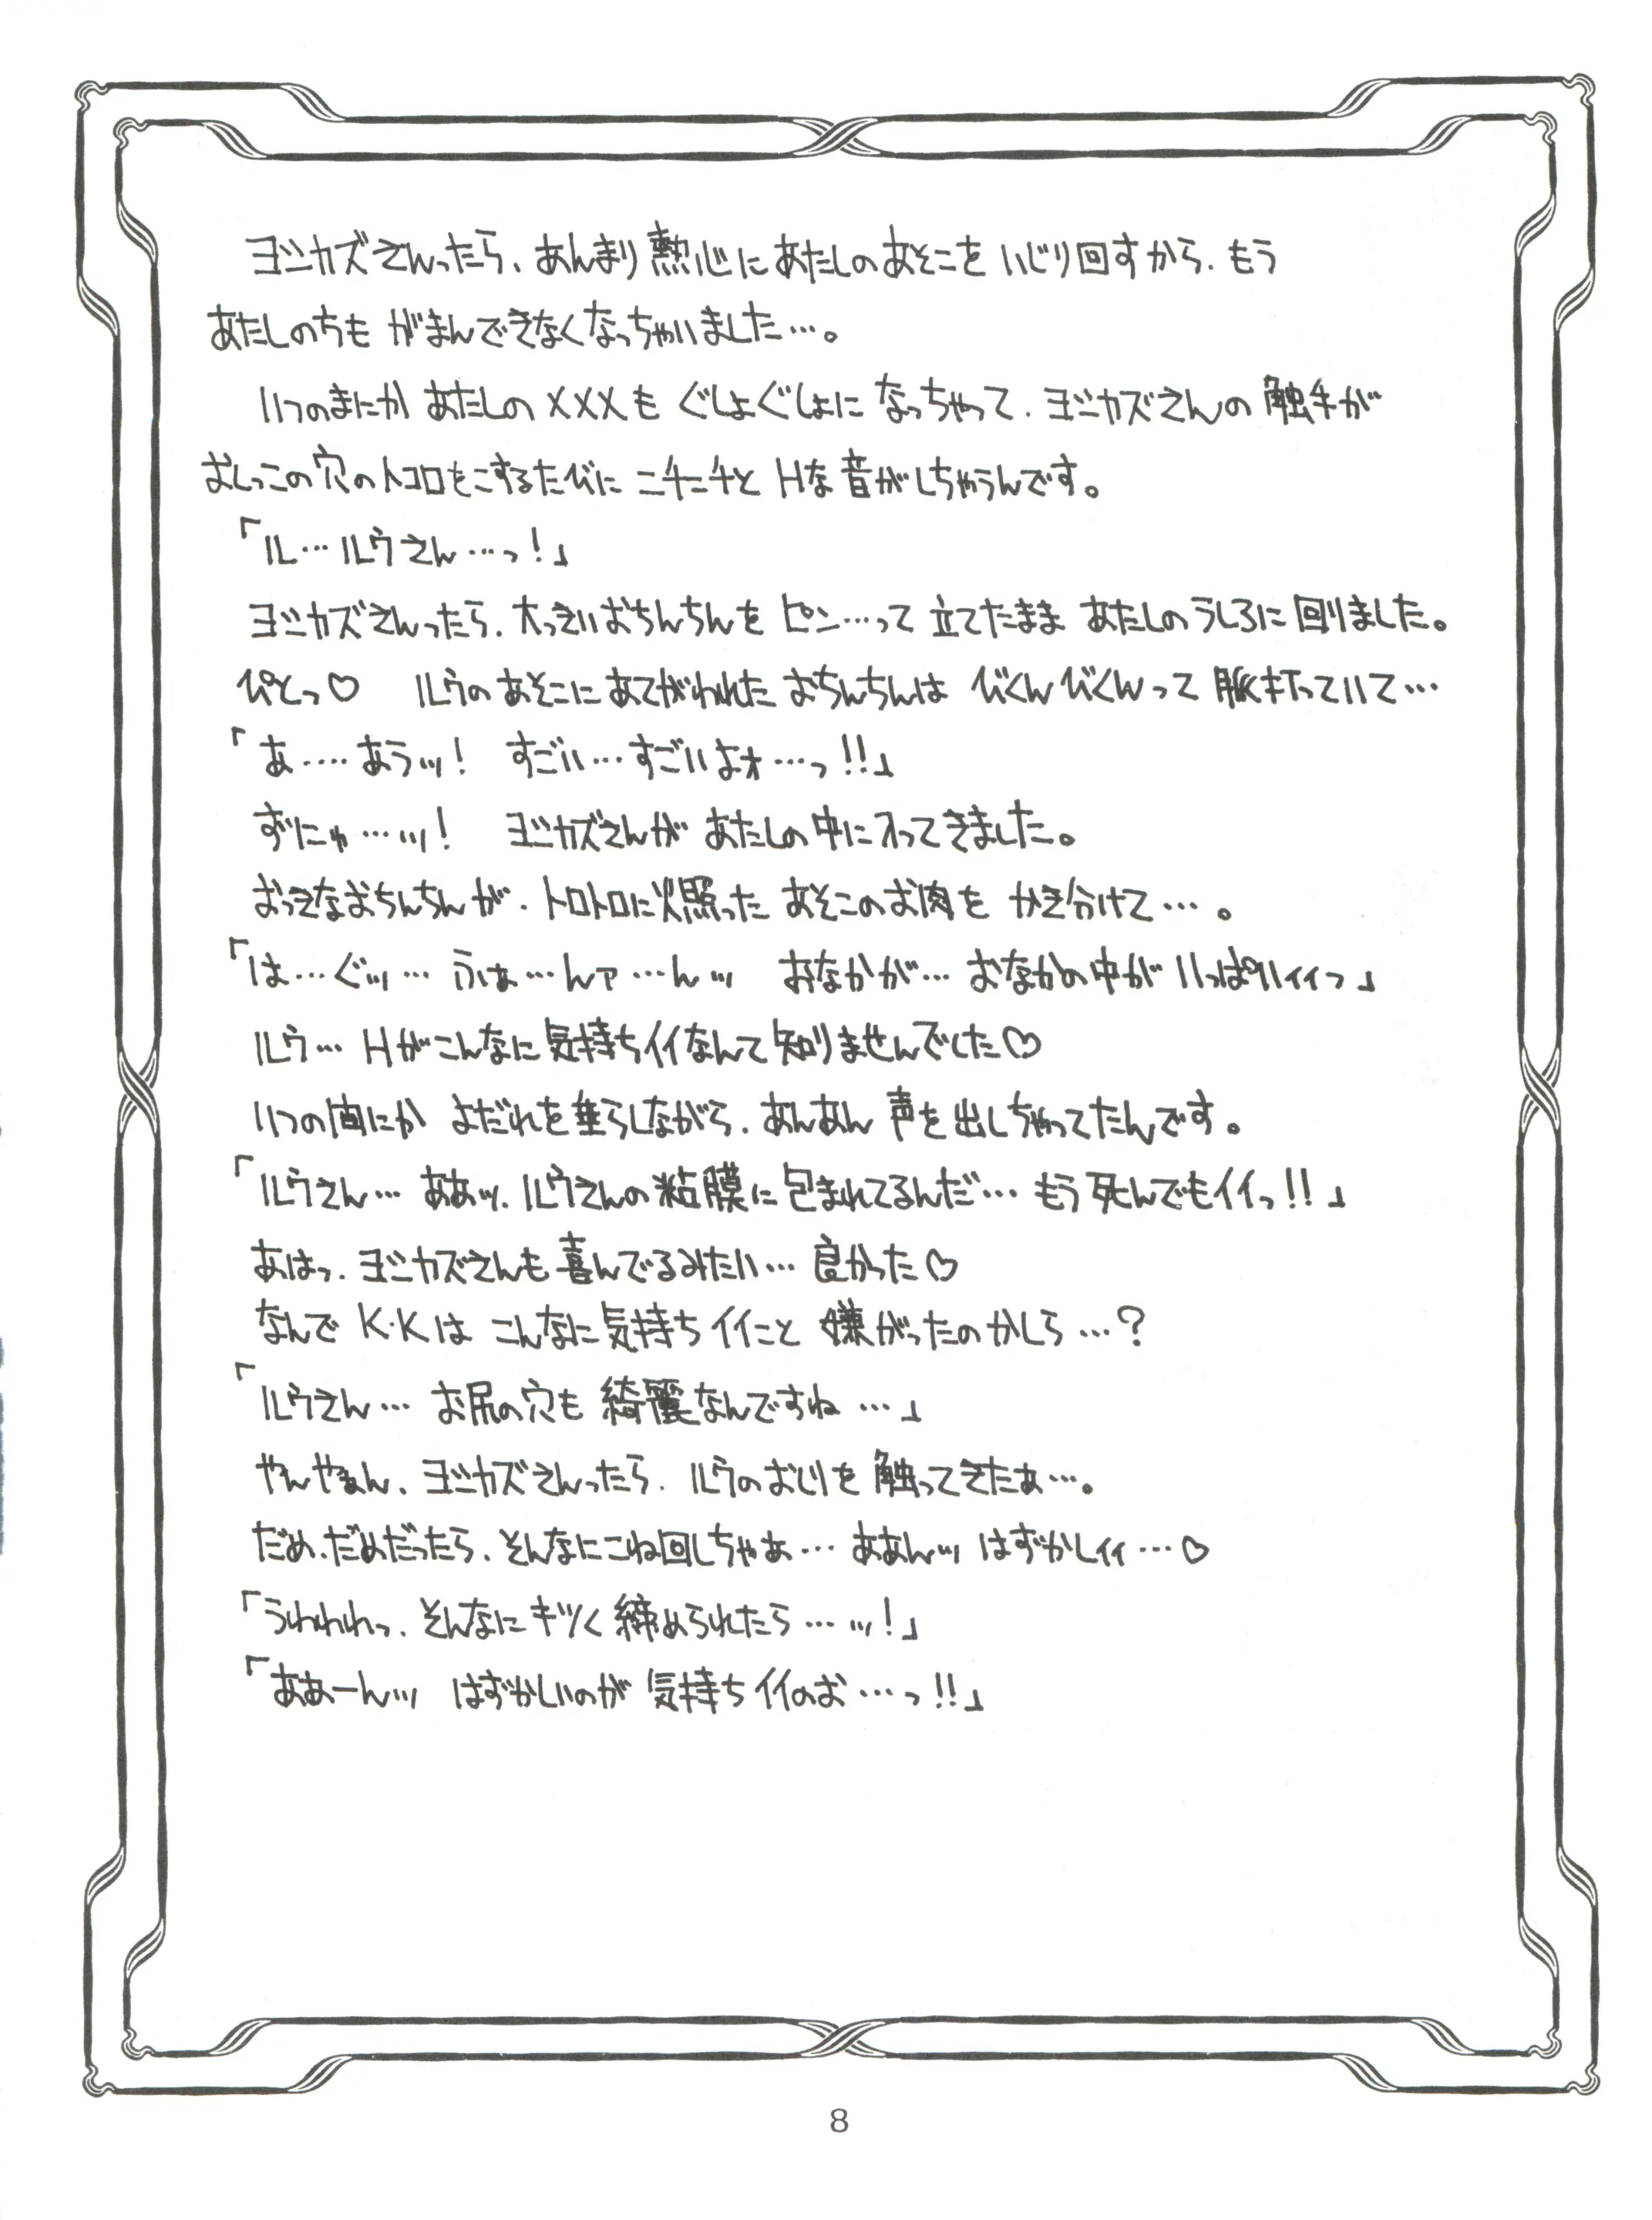 ヨシカズさんったら、あんまり熱心にあたしのあそこをいじり回すから、もう
あたしの方もがまんできなくなっちゃいました…。
いつのまにかあたしのXXXもぐしょぐしょになっちゃって、ヨシカズさんの触手が
おしっこの穴のトコロをこするたびにニチニチとHな音がしちゃうんです。
「ル…ルウさん…っ!」
ヨシカズさんったら、大っきいおちんちんをピン…って立てたままあたしのうしろに回りました。
ぴとっ♡ ルウのあそこにあてがわれたおちんちんはびくんびくんって脈打っていて…
「あ‥‥あうッ! すごい…すごいよォ…っ!!」
ずにゅ…ッ! ヨシカズさんがあたしの中に入ってきました。
おっきなおちんちんが、トロトロに火照ったあそこのお肉をかき分けて…。
「は…ぐッ…ふぁ…んァ…んッ おなかが…おなかの中がいっぱいィィっ」
ルウ…Hがこんなに気持ちイイなんて知りませんでした♡
いつの間にかよだれを垂らしながら、あんあん声を出しちゃってたんです。
「ルウさん…ああッ、ルウさんの粘膜に包まれてるんだ…もう死んでもイイっ!!」
あはっ、ヨシカズさんも喜んでるみたい…良かった♡
なんでK・Kはこんなに気持ちイイこと嫌がったのかしら…?
「ルウさん…お尻の穴も綺麗なんですね…」
やんやぁん、ヨシカズさんったら、ルウのおしりを触ってきたぁ…。
だめ、だめだったら、そんなにこね回しちゃぁ…ああんッ はずかしィィ…♡
「うわわわっ、そんなにキツく締められたら…ッ!」
「ああーんッ はずかしいのが気持ちイイのぉ…っ!!」
8